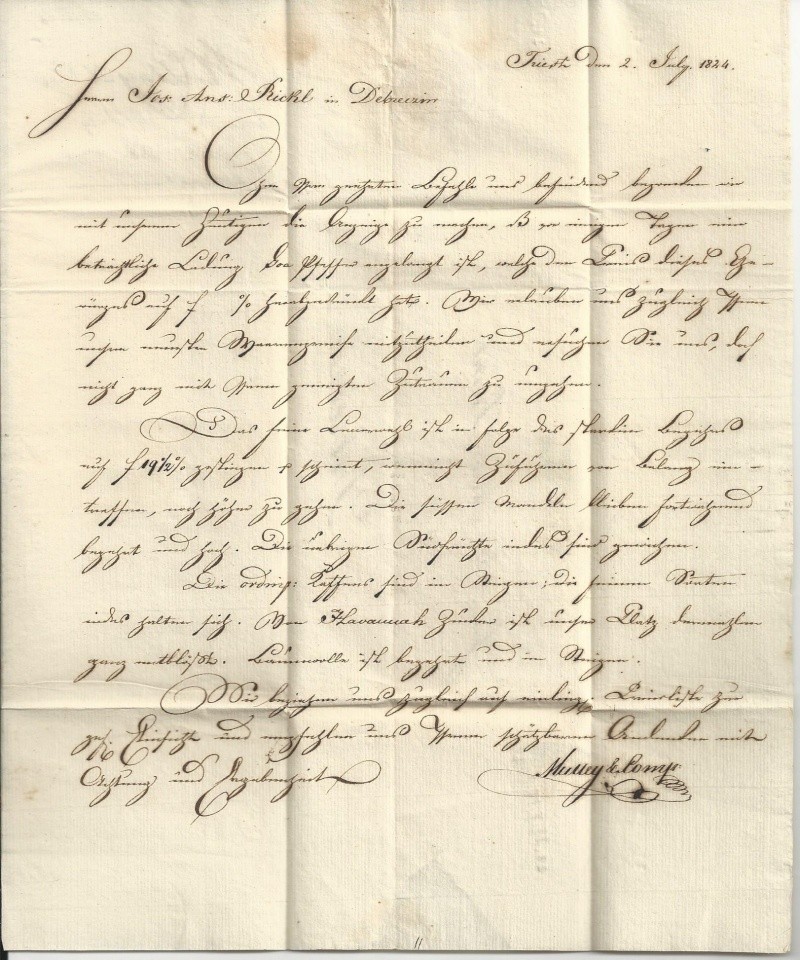 Trieste den 2. July. 1824.
Herrn Jos: Ans: Rickl in Debreczin
Ohne Ihre geehrten Befehle uns befindend bezwecken wir
mit unserem Heutigen die Anzeige zu machen, daß vor einigen Tagen eine
beträchtliche Ladung Goa Pfeffer angelangt ist, welche den Preis dieses Ge-
würzes auf f % herabgedrückt hat. Wir erlauben uns zugleich Ihnen
unsere neuesten Waarenpreise mitzutheilen und ersuchen Sie uns, doch
nicht ganz mit Ihrem geneigten Zutrauen zu umgehen.
Das feine ist in Folge des starken Begehrs
auf f 19 1/2 % gestiegen & scheint, wenn nicht Zufuhren von ein-
treffen, noch höher zu gehen. Die süssen Mandeln bleiben fortwährend
begehrt und hoch. Die uebrigen Südfrüchte indeß sind gewichen.
Die ordin: Kaffees sind im Steigen; die feinen Sorten
indes halten sich. Von Havannah Zucker ist unser Platz dermahlen
ganz entblößt. Baumwolle ist begehrt und im Steigen.
Wir beziehen uns zugleich auf einlieg: Preisliste zur
gef. Einsicht und empfehlen uns Ihrem schätzbaren Andenken mit
Achtung und Ergebenheit
Mulley & Comp